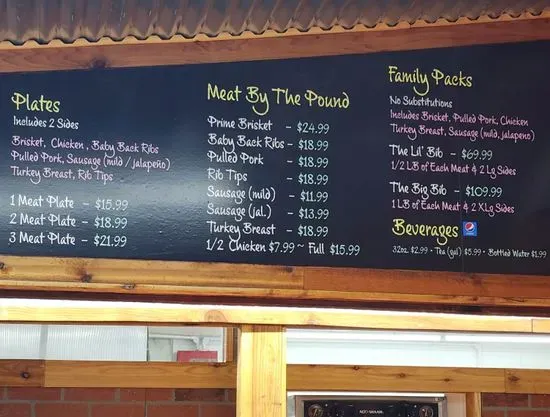 Plates
Includes 2 Sides
Brisket, Chicken, Baby Back Ribs
Pulled Pork, Sausage (mild / jalapeño)
Turkey Breast, Rib Tips
1 Meat Plate - $15.99
2 Meat Plate - $18.99
3 Meat Plate - $21.99
Meat By The Pound
Prime Brisket - $24.99
Baby Back Ribs - $18.99
Pulled Pork - $18.99
Rib Tips - $18.99
Sausage (mild) - $11.99
Sausage (jal.) - $13.99
Turkey Breast - $18.99
1/2 Chicken $7.99 ~ Full $15.99
Family Packs
No Substitutions
Includes Brisket, Pulled Pork, Chicken
Turkey Breast, Sausage (mild, jalapeño)
The Lil' Bib - $69.99
1/2 LB of Each Meat & 2 Lg Sides
The Big Bib - $109.99
1 LB of Each Meat & 2 XLg Sides
Beverages
32oz. $2.99 • Tea (gal) $5.99 • Bottled Water $1.99